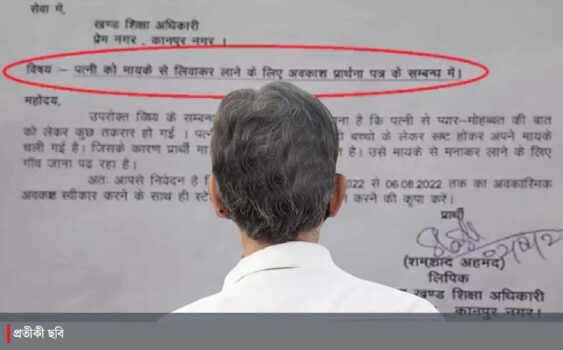 सेवा में,
खण्ड शिक्षा अधिकारी
प्रेम नगर , कानपुर नगर ।
विषय :- पत्नी को मायके से लिवाकर लाने के लिए अवकाश प्रार्थना पत्र के सम्बन्ध में।
महोदय,
उपरोक्त विषय के सम्बन्ध ना है कि पत्नी से प्यार-मोहब्बत की बात
को लेकर कुछ तकरार हो गई । पत्नी बच्चो के लेकर रूष्ट होकर अपने मायके
चली गई है। जिसके कारण प्रार्थी मा त है। उसे मायके से मनाकर लाने के लिए
गाँव जाना पढ रहा है।
अतः आपसे निवेदन है कि 2022 से 06.08.2022 तक का अवकास्मिक
अवकाश स्वीकार करने के साथ ही स्टे न करने की कृपा करे।
प्रार्थी
(शमशाद अहमद)
लिपिक
खण्ड शिक्षा अधिकारी
कानपुर नगर।
প্রতীকী ছবি